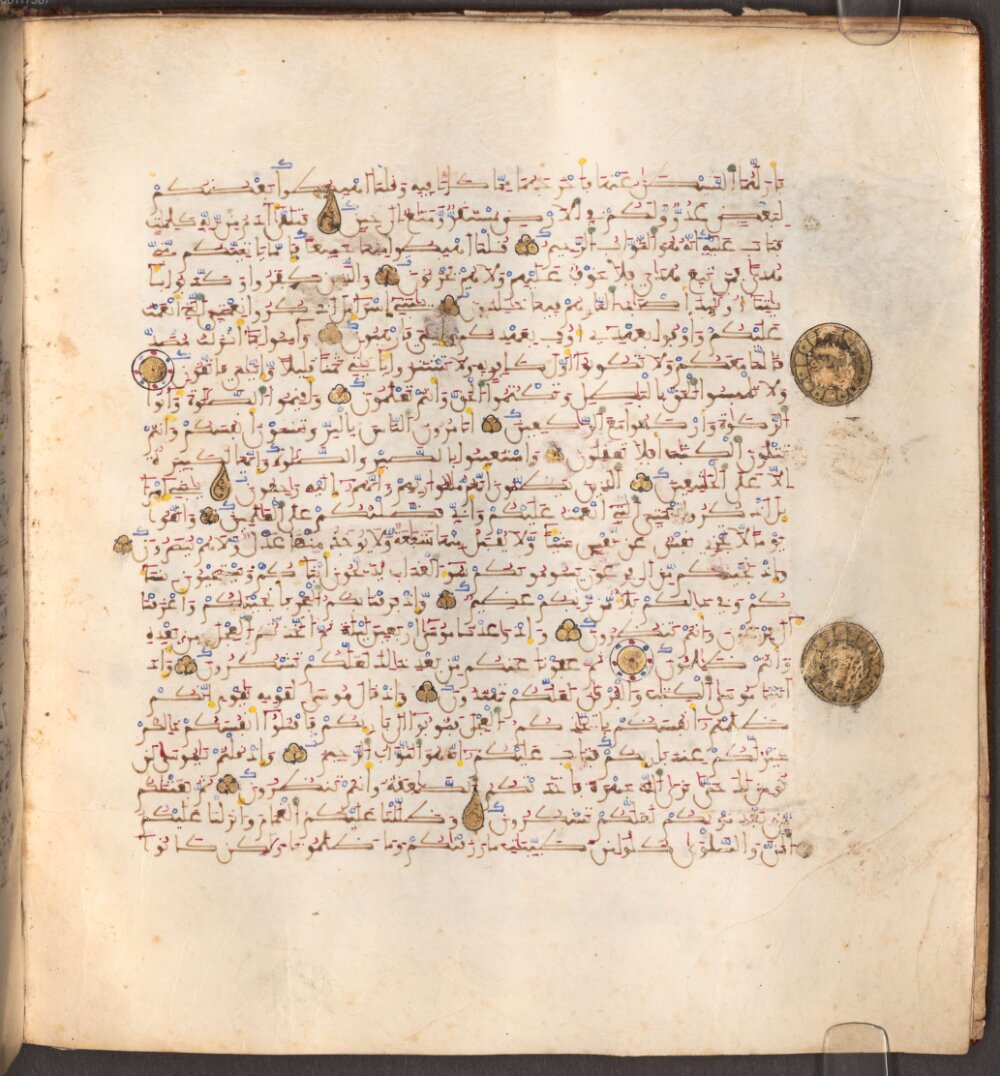 فازلهما الشيطن عنها فاخرجهما مما كانا فيه وقلنا اهبطوا بعضكم
لبعض عدو ولكم في الارض مستقر ومتع الى حين فتلقى ادم من ربه كلمت
فتاب عليه انه هو التواب الرحيم قلنا اهبطوا منها جميعا فاما ياتينكم مني
هدى فمن تبع هداي فلا خوف عليهم ولا هم يحزنون والذين كفروا وكذبوا با
يتنا اولئك اصحب النار هم فيها خلدون يبني اسرايل اذكروا نعمتي التي انعمت
عليكم واوفوا بعهدي اوف بعهدكم وايي فارهبون وامنوا بما انزلت مصد
قا لما معكم ولا تكونوا اول كافر به ولا تشتروا بايتي ثمنا قليلا وايي فاتقون
ولا تلبسوا الحق بالبطل وتكتموا الحق وانتم تعلمون واقيموا الصلوة واتوا
الزكوة واركعوا مع الركعين اتامرون الناس بالبر وتنسون انفسكم وانتم
تتلون الكتب افلا تعقلون واستعينوا بالصبر والصلوة وانها لكبيرة
الا على الخشعين الذين يظنون انهم ملقوا ربهم وانهم اليه رجعون يبني اسرا
يل اذكروا نعمتي التي انعمت عليكم واني فضلتكم على العلمين واتقوا
يوما لا تجزي نفس عن نفس شيئا ولا يقبل منها شفعة ولا يوخذ منها عدل ولا هم ينصرون
واذ نجينكم من ال فرعون يسومونكم سوء العذاب يذبحون ابناكم ويستحيون نسا
كم وفي ذلكم بلاء من ربكم عظيم واذ فرقنا بكم البحر فانجينكم واغرقنا
ال فرعون وانتم تنظرون واذ وعدنا موسى اربعين ليلة ثم اتخذتم العجل من بعده
وانتم ظلمون ثم عفونا عنكم من بعد ذلك لعلكم تشكرون واذ
اتينا موسى الكتب والفرقان لعلكم تهتدون واذ قال موسى لقومه يقوم انكم
ظلمتم انفسكم باتخاذكم العجل فتوبوا الى باريكم فاقتلوا انفسكم ذلكم
خير لكم عند باريكم فتاب عليكم انه هو التواب الرحيم واذ قلتم يموسى لن
نومن لك حتى نرى الله جهرة فاخذتكم الصعقة وانتم تنظرون ثم بعثنكم
من بعد موتكم لعلكم تشكرون وظللنا عليكم الغمم وانزلنا عليكم
المن والسلوى كلوا من طيبت ما رزقنكم وما ظلمونا ولكن كانوا